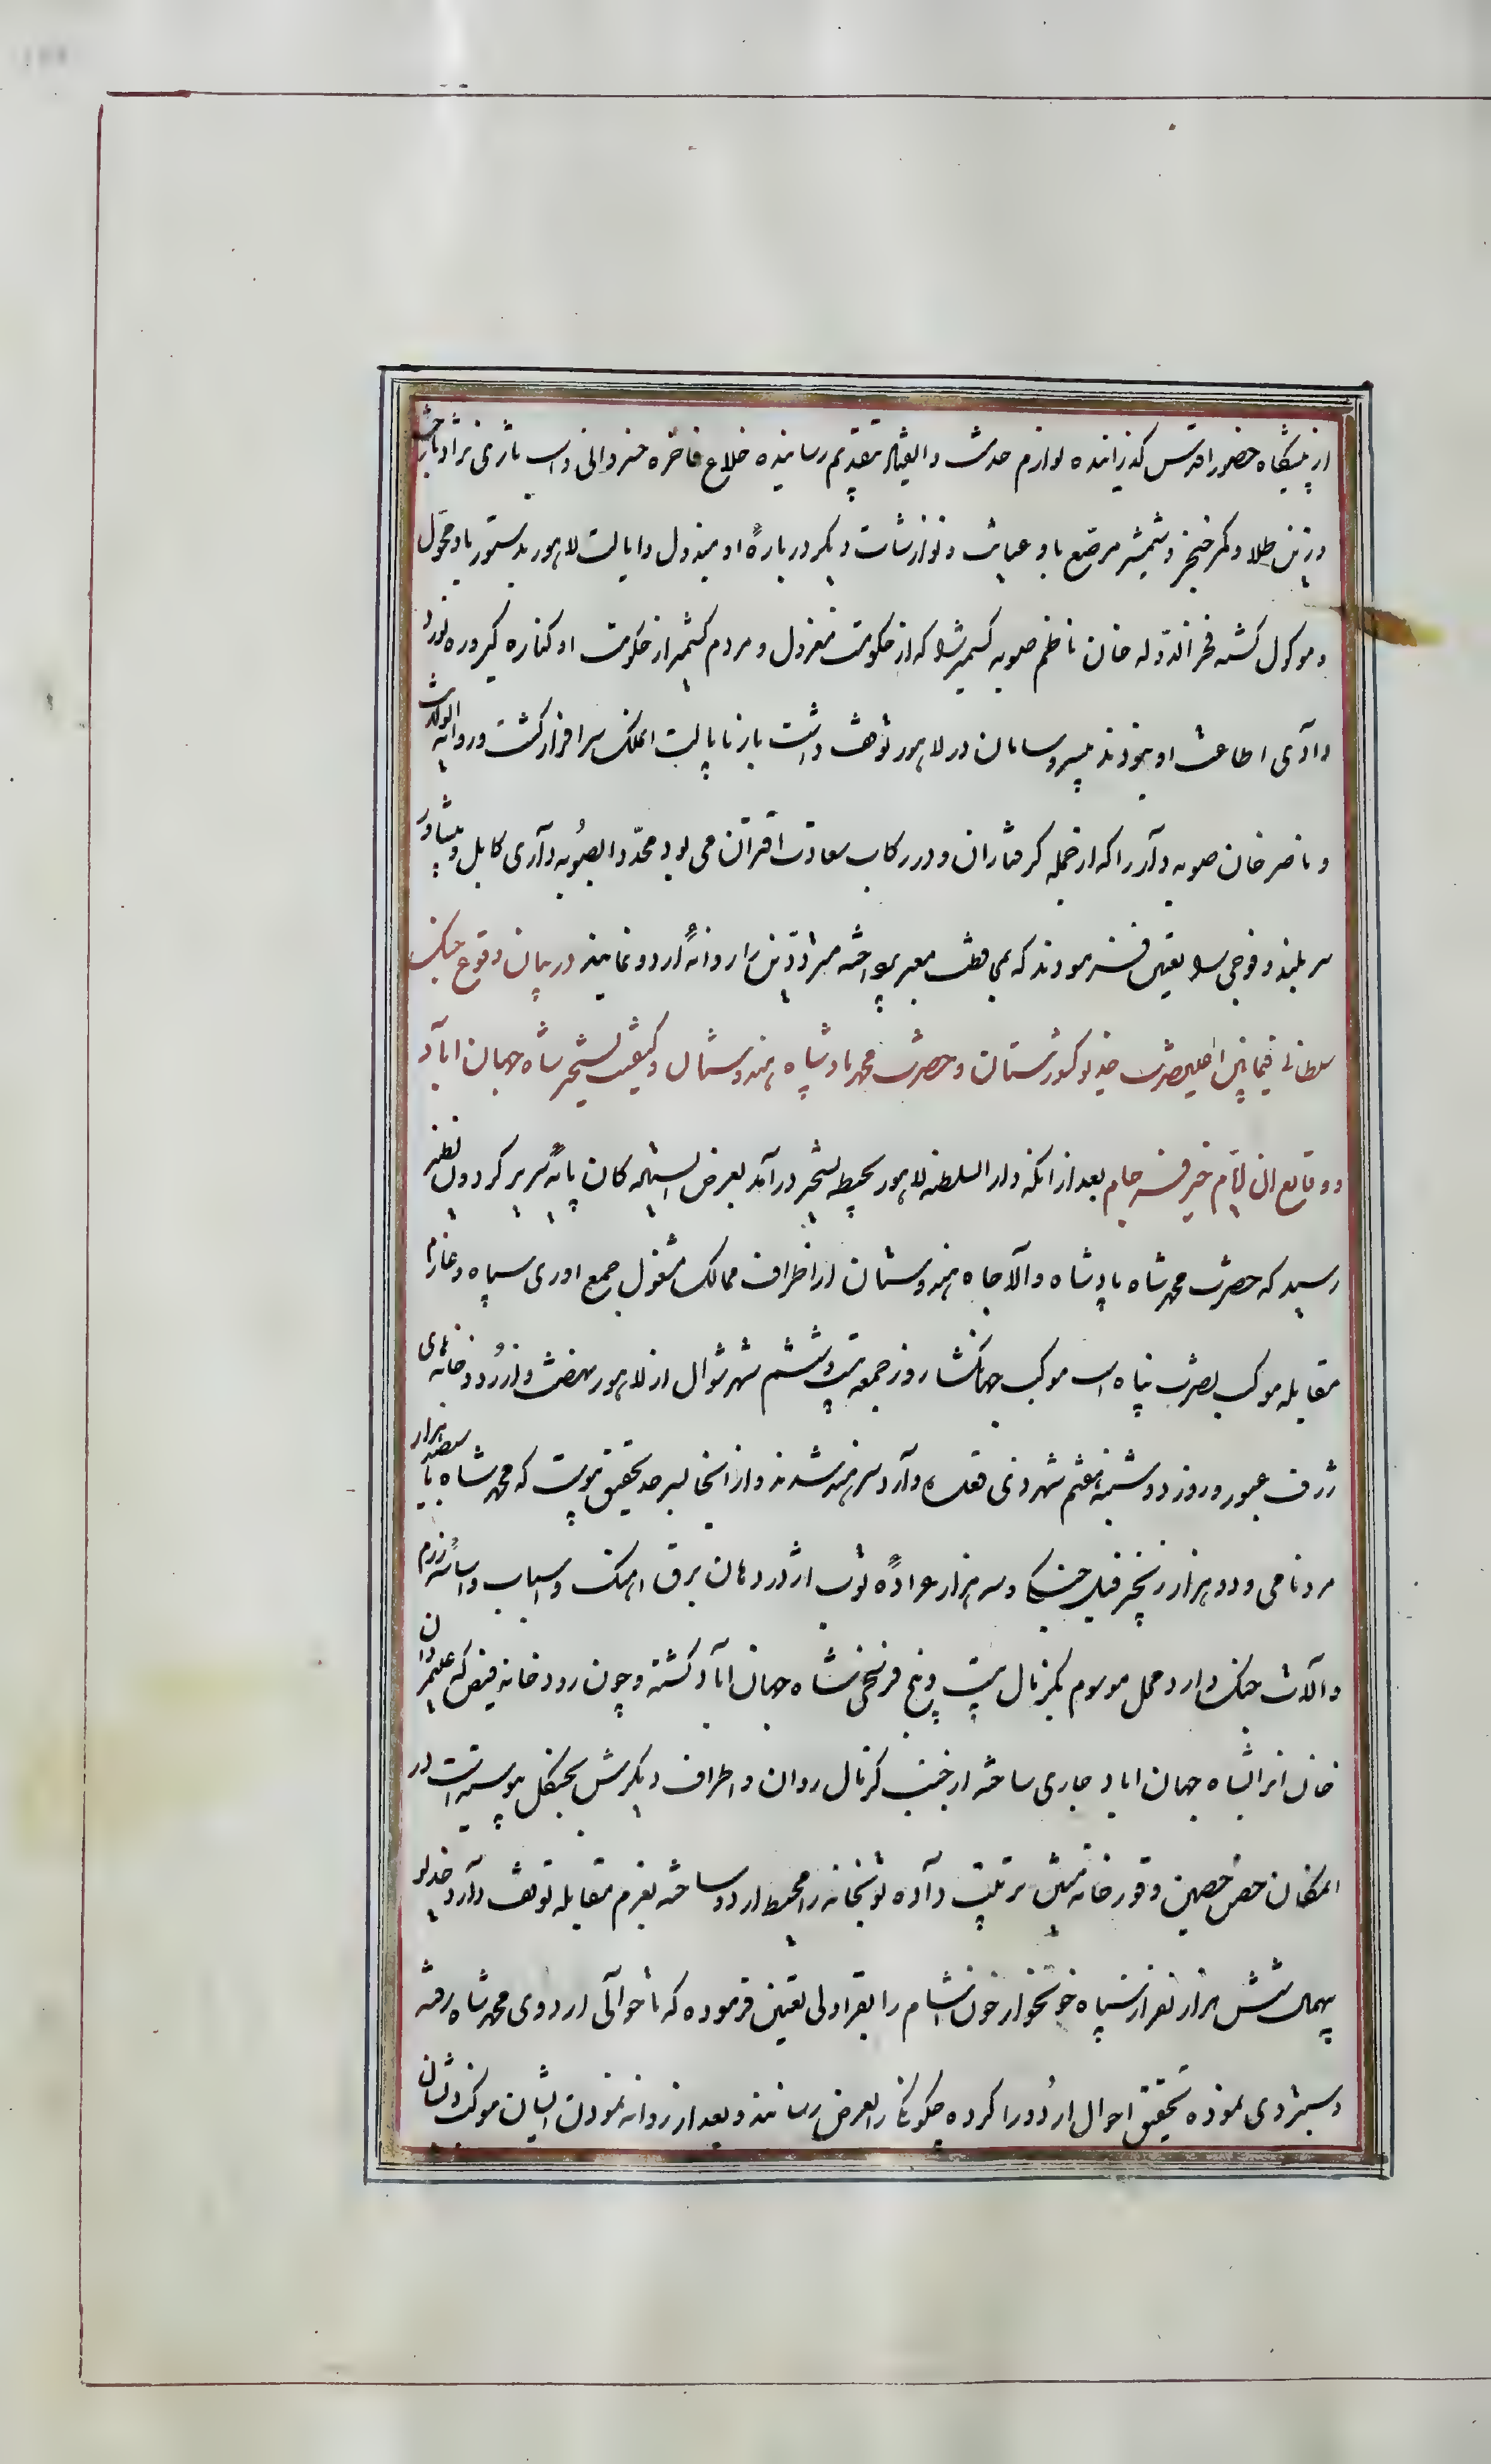 از پیشگاه حضور اقدس گذرانیده لوازم خدمت و انقیاد بتقدیم رسانیده خلاع فاخره خسروانی و اسب تازی نژاد با رخت
و زین طلا و کمر خنجر و شمشیر مرصع باو عنایت و نوازشات دیگر درباره او مبذول و ایالت لاهور بدستور باو محول
و موکول گشته فخرالدوله خان ناظم صوبه کشمیر را که از حکومت معزول و مردم کشمیر از حکومت او کناره گیر و ره نورد
وادی اطاعت او نبودند بیسروسامان در لاهور توقف داشت باز بایالت الملک سرافراز گشت و روانه الولکت
و ناصر خان صوبه دار را که از جمله گرفتاران و در رکاب سعادت اقتران می بود مجددا بصوبه داری کابل و پیشاور
سربلند و فوجی را تعیین فرمودند که بمحافظت معبر پرداخته مترددین را روانه اردو نمایند در بیان وقوع جنک
سلطانی فیمابین اعلیحضرت خدیو کشورستان و حضرت محمد پادشاه هندوستان و کیفیت تسخیر شاه جهان اباد
و وقایع ان ایام خیر فرجام بعد از انکه دارالسلطنه لاهور بحیطه تسخیر درآمد بعرض ایستادکان پایه سریر کردون نظیر
رسید که حضرت محمد شاه پادشاه والاجاه هندوستان از اطراف ممالک مشغول جمع اوری سپاه و عازم
مقابله موکب نصرت پناه است موکب جهانکشا روز جمعه بیست و ششم شهر شوال از لاهور نهضت و از رودخانه های
ژرف عبور و روز دوشنبه هفتم شهر ذی قعده وارد سرهند شدند و از انجا بسرحد تحقیق پیوست که محمد شاه با سیصد هزار
مرد نامی و دو هزار زنجیر فیل جنکی و سه هزار عراده توپ اژدردهان برق اهنک و اسباب و اساسه رزم
و آلات جنک وارد محل موسوم بکرنال بیست و پنج فرسخی شاه جهان اباد کشته و چون رودخانه فیض که علیمردان
خان انرا بشاه جهان اباد جاری ساخته از جنب کرنال روان و اطراف دیکرش بجنکل پیوسته است در
المکان حصن حصین و قورخانه متین ترتیب داده توپخانه را محیط اردو ساخته بعزم مقابله توقف دارد خدیو
بیهمال شش هزار نفر از سپاه خونخوار خون اشام را بقراولی تعیین فرموده که تا حوالی اردوی محمد شاه رفته
دستبردی نموده تحقیق احوال اردو را کرده چکونکی را بعرض رسانند و بعد از روانه نمودن ایشان موکب والا